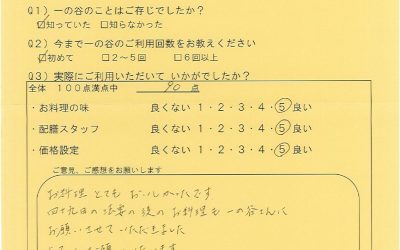 Q1）一の谷のことはご存じでしたか？
☑知っていた　□知らなかった
Q2）今まで一の谷のご利用回数をお教えください
☑初めて　□２～５回　□６回以上
Q3）実際にご利用いただいて いかがでしたか？
全体　１００点満点中　90　点
・お料理の味　良くない １・２・３・４・⑤ 良い
・配膳スタッフ　良くない １・２・３・４・⑤ 良い
・価格設定　良くない １・２・３・４・⑤ 良い
ご意見、ご感想をお願いします
お料理 とても おいしかったです
四十九日の法要の後の お料理も 一の谷さんに
お願いさせていただきました